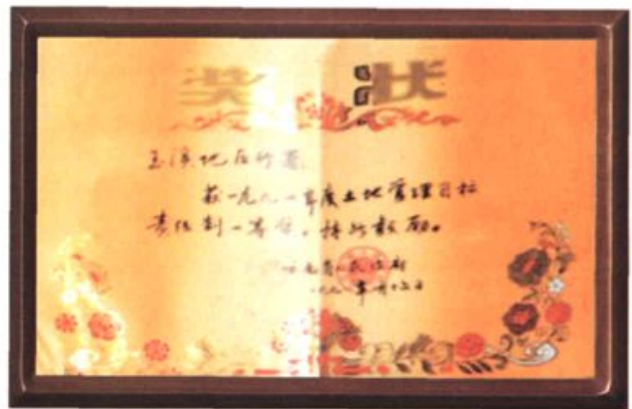 奖状
玉溪地区行署:
获一九九一年度土地管理目标
责任制一等奖。特此鼓励。
云南省人民政府